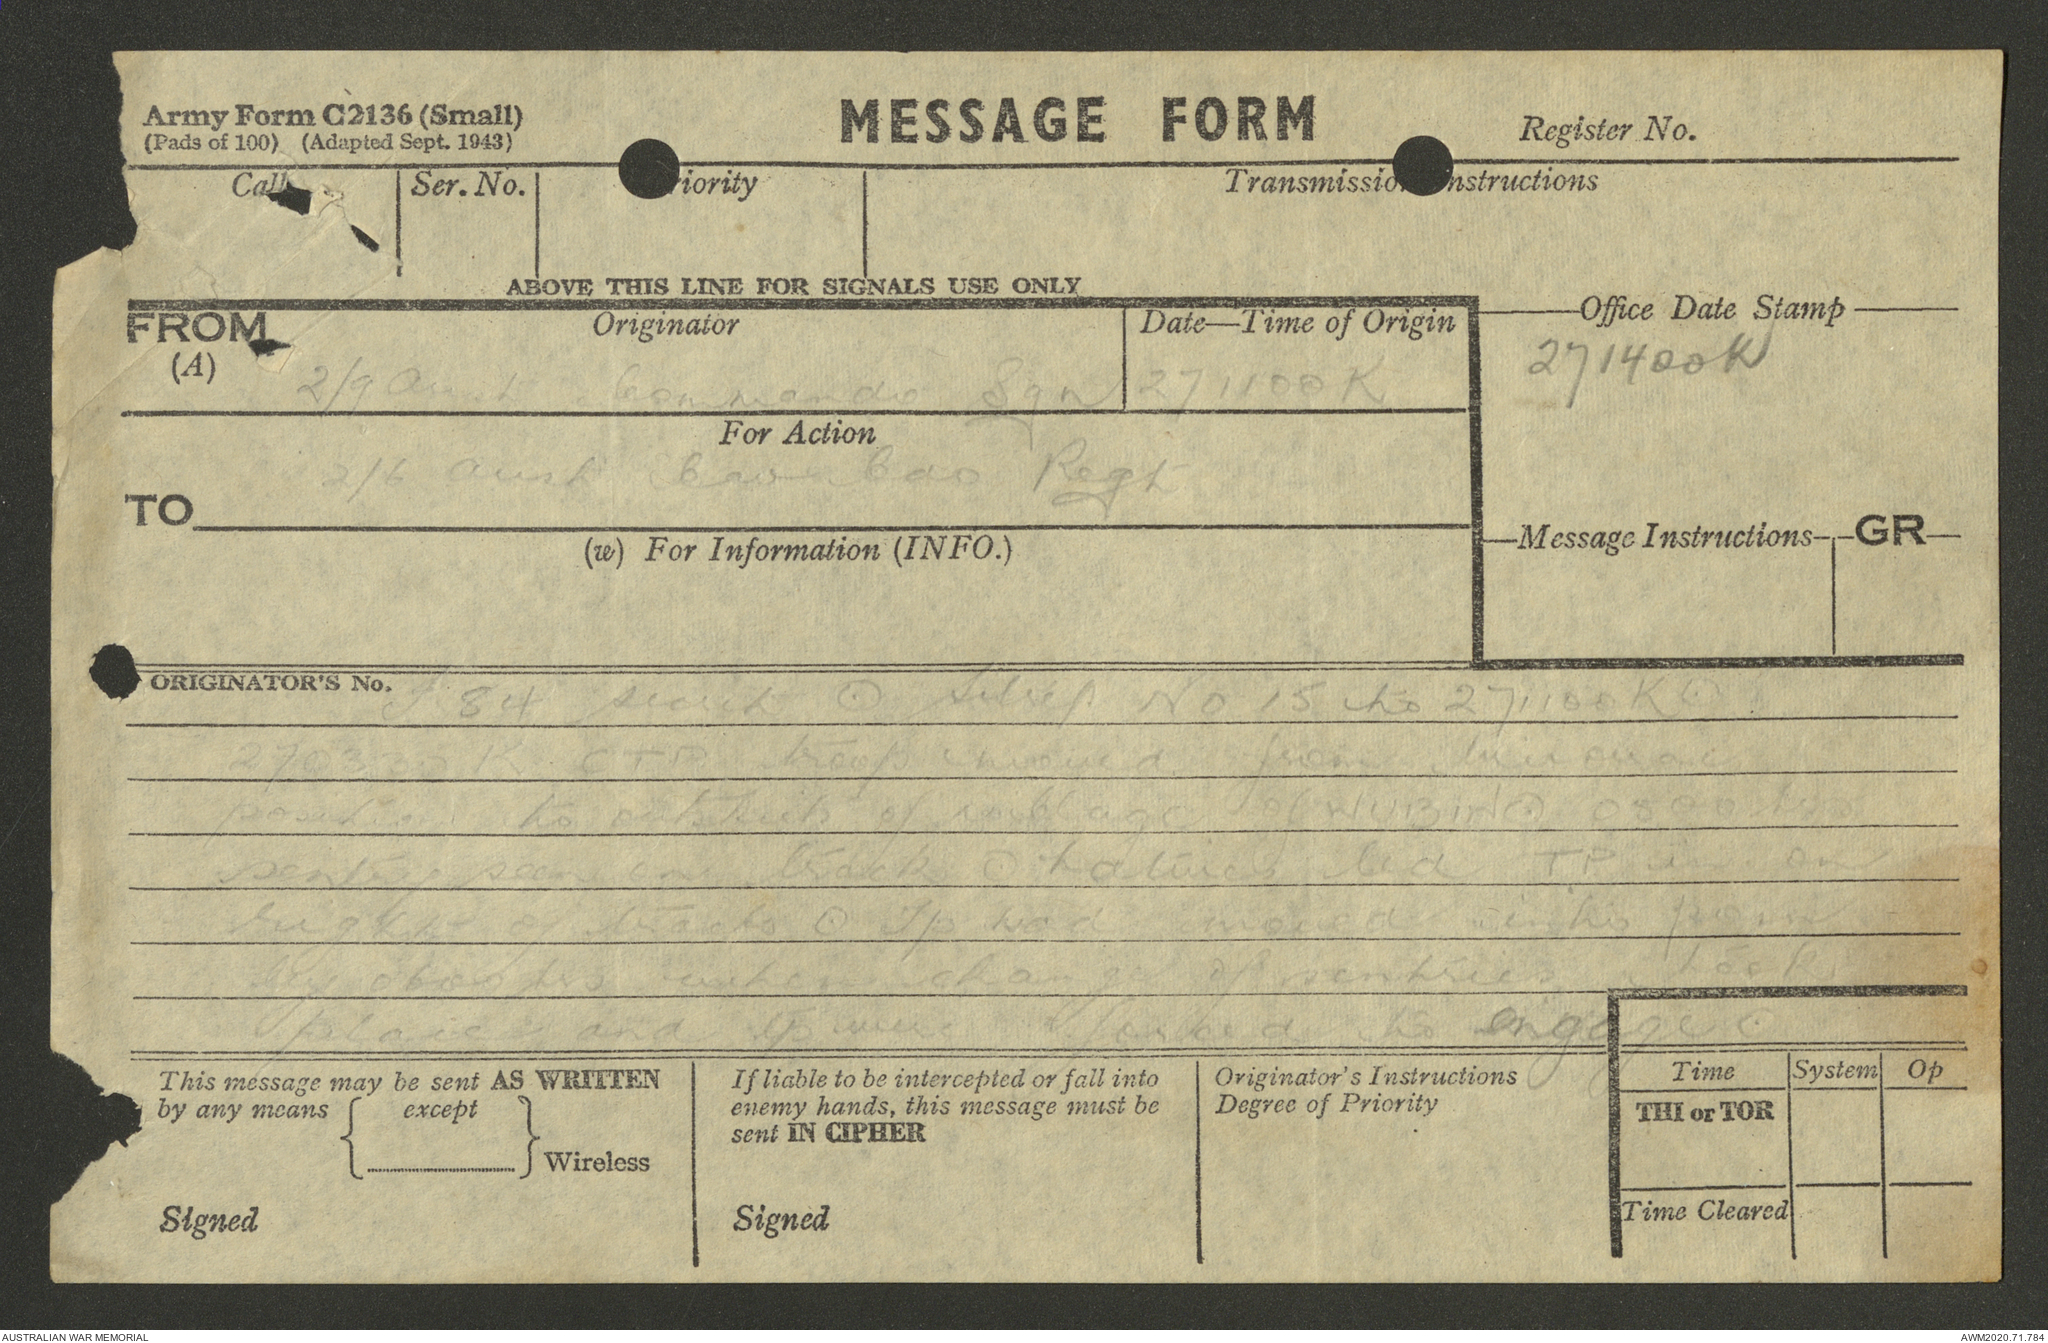 Army Form C2136 (Small)
(Pads of 100) (Adapted Sept. 1943)
MESSAGE FORM
Register No.
Call
Ser. No.
riority
Transmissio nstructions
ABOVE THIS LINE FOR SIGNALS USE ONLY
FROM
(A)
Originator
Date—Time of Origin
Office Date Stamp
2/9 Aust Commando Sqn
271100K
271400K
For Action
2/6 Aust Cav Cdo Regt
TO
(w) For Information (INFO.)
Message Instructions
GR
ORIGINATOR'S No.
84 secret ⊙ sitrep No 15 to 271100K ⊙
270330K troop moved from
position to outskirts of village of 0800 hrs
sentry seen on track ⊙ natives led TP in on
right of track ⊙ Tp had moved into posn
by hrs when change of sentries took
place and tp were forced to engage ⊙
This message may be sent AS WRITTEN
by any means { except } Wireless
Signed
If liable to be intercepted or fall into
enemy hands, this message must be
sent IN CIPHER
Signed
Originator's Instructions
Degree of Priority
Time
System
Op
THI or TOR
Time Cleared
AUSTRALIAN WAR MEMORIAL
AWM2020.71.784